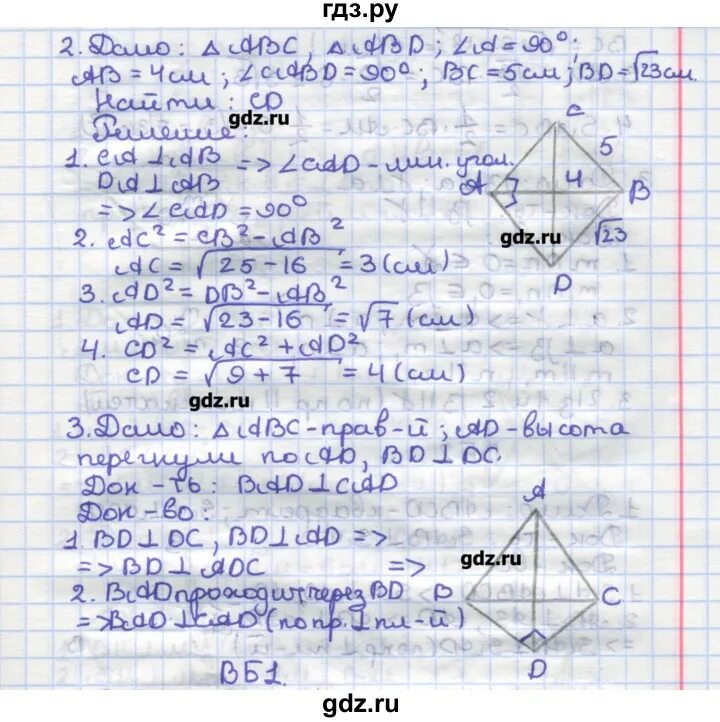 гдз.ру
2. Дано: △ABC, △ABD; ∠A = 90°;
AB = 4 см; ∠ABD = 90°; BC = 5 см; BD = √23 см.
Найти: CD
gdz.ru
Решение:
1. CA ⊥ AB => ∠CAD - лин. угол.
DA ⊥ AB
=> ∠CAD = 90°
2. AC² = CB² - AB²
AC = √25 - 16 = 3 (см)
3. AD² = DB² - AB²
AD = √23 - 16 = √7 (см)
4. CD² = AC² + AD²
CD = √9 + 7 = 4 (см)
C
5
A
4
B
gdz.ru
√23
D
gdz.ru
3. Дано: △ABC - прав-й; AD - высота
перегнули по AD, BD ⊥ DC.
Док-ть: BAD ⊥ CAD
Док-во:
1. BD ⊥ DC, BD ⊥ AD =>
=> BD ⊥ ADC =>
2. BAD проходит через BD
=> BAD ⊥ CAD (по пр. ⊥ пл-й)
A
gdz.ru
B
C
D
ВБ1.
gdz.ru